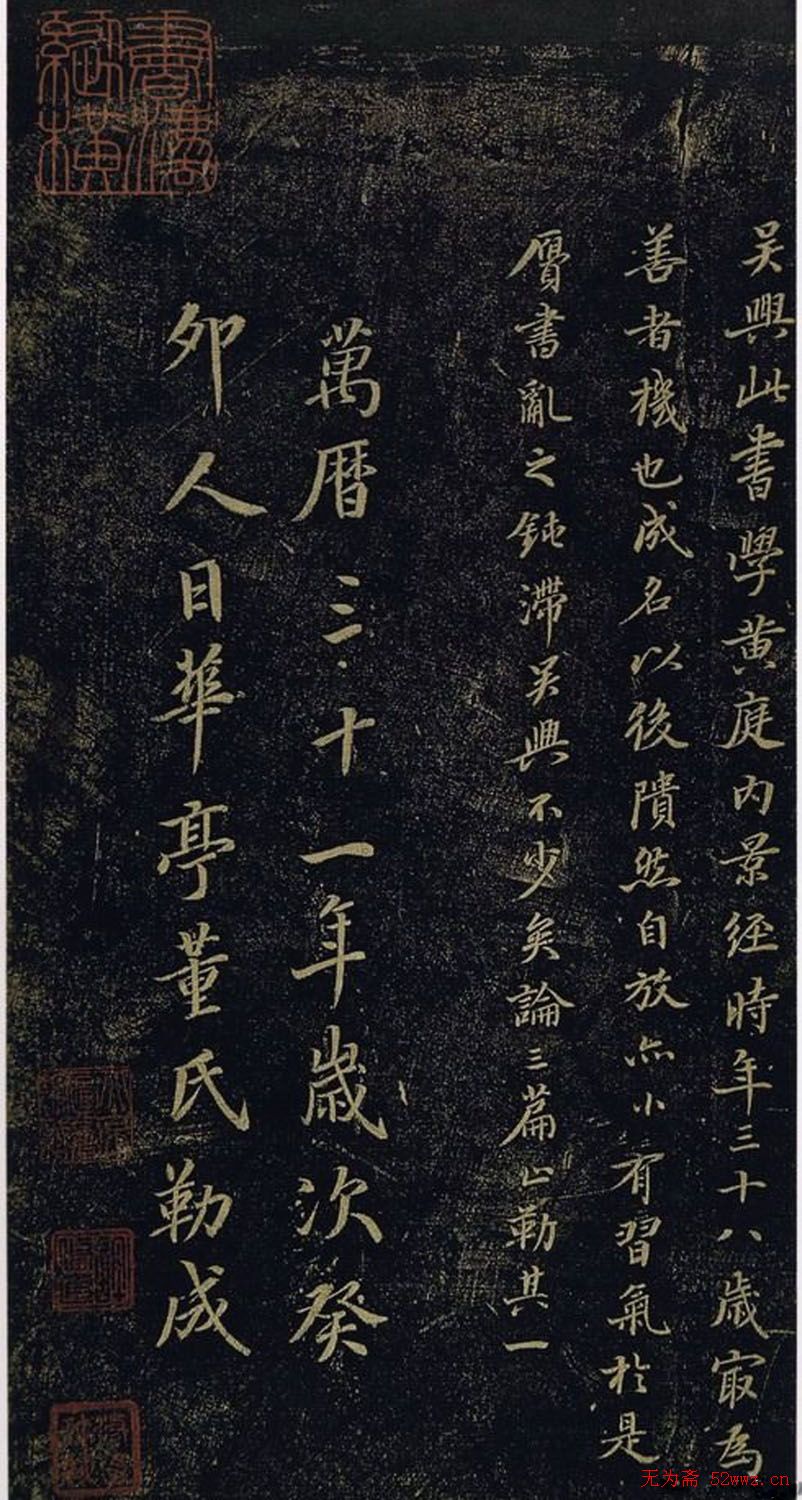 吴興此書學黄庭内景經時年三十八歲㝡為
善者機也成名以後隤然自放亦小有習氣於是
贋書亂之鈍滯吴興不少矣論三篇止勒其一
萬曆三十一年歲次癸
卯人日華亭董氏勒成
无为斋 52wwz.cn